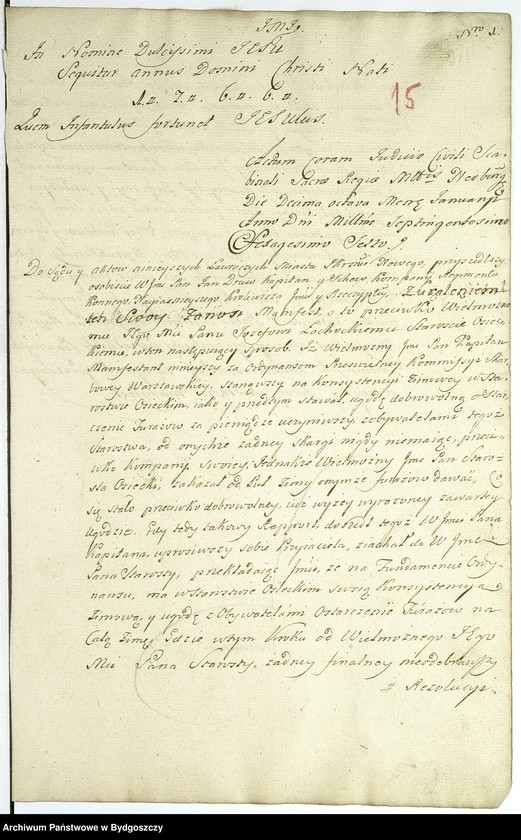 J.M.J.
Nro 1.
In Nomine Dulcissimi JESU
Sequitur annus Domini Christi Nati
1.# 7.# 6.# 6.#
15
Quem Infantulus fortunet JESULUS.
Actum coram Judicio Civili Sca-
binali Sacræ Regiæ Mttis Neoburg
Die Decima octava Mensis Januarij
Anno Dni Millmo Septingentesimo
Sexagesimo Sexto
Do Sądu y aktow ninieyszych Ławniczych Miasta Nowego, przyszedłszy
osobiscie W Jmć Pan Jan Kapitan y Kompanij Regimentu
Konnego Nayiasnieyszego Krolewica Jmci y Rzeczyptey,
ten Manifest, a to przeciwko Wielmożne-
mu Jego Mci Panu Jozefowi Staroscie Osiec-
kiemu, wten następuiący sposob. Iż Wielmożny Jmć Pan Kapitan
Manifestant ninieyszy za Ordynansem Przeswietney Kommissyi Skar-
bowey Warszawskiey, stanąwszy na Konsystencyi Zimowey w Sta-
rostwie Osieckim, iako y przedtym stawał, ugodę dobrowolną o Star-
czenie Furażow za pieniądze uczyniwszy, z obywatelami tegoż
Starostwa, od onychże żadney skargi nigdy niemaiąc, przeci-
wko Kompanij Swoiey; Jednakże Wielmożny Jmć Pan Staro-
sta Osiecki, zakazał od Puł Zimy onymże furażow dawać, Co
się stało przeciwko dobrowolney, iuż wyżey wyrażoney zawartey
ugodzie. Gdy tedy takowy Rapport, doszedł tegoż W Jmci Pana
Kapitana, uprosiwszy sobie Przyiaciela, ziachał do W Jmci
Pana Starosty, przekładaiąc Jmci, że na Fundamencie Ordy-
nansu, ma w Starostwie Osieckim swoią Konsystencyą
Zimową, y ugodę z Obywatelami Ostarczenie Furażow na
Całą Zimę, Gdzie wtym Kroku od Wielmożnego JEgo
Mci Pana Starosty, żadney finalney nieodebrawszy
# Rezolucyi
Archiwum Państwowe w Bydgoszczy